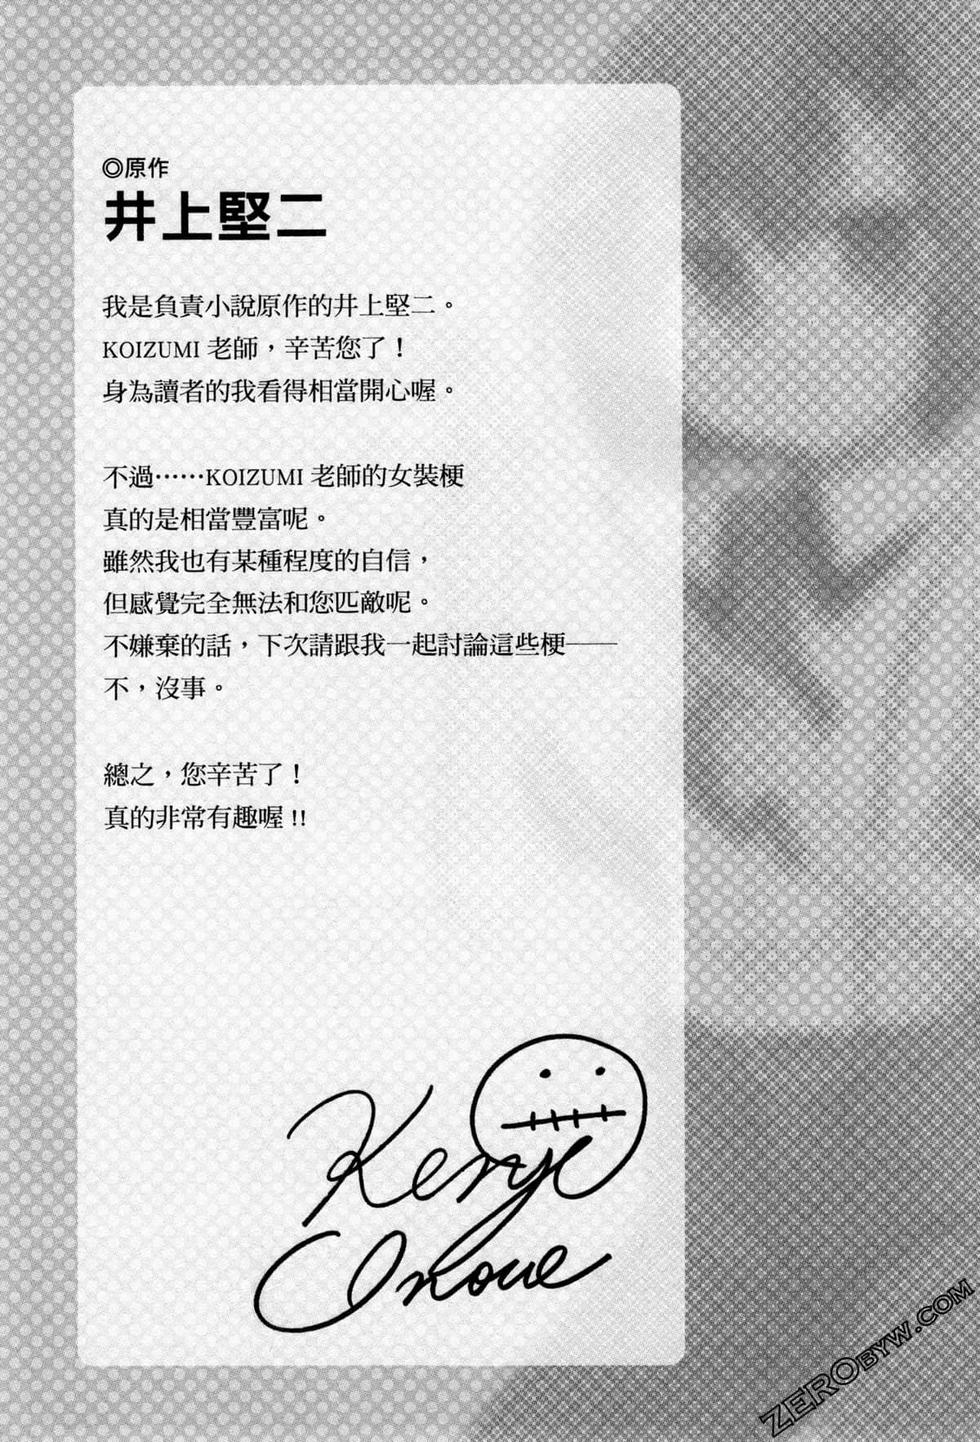 ◎原作
井上堅二
我是負責小說原作的井上堅二。
KOIZUMI 老師，辛苦您了！
身為讀者的我看得相當開心喔。
不過……KOIZUMI 老師的女裝梗
真的是相當豐富呢。
雖然我也有某種程度的自信，
但感覺完全無法和您匹敵呢。
不嫌棄的話，下次請跟我一起討論這些梗——
不，沒事。
總之，您辛苦了！
真的非常有趣喔!!
Kenji
Inoue
ZEROBYW.COM